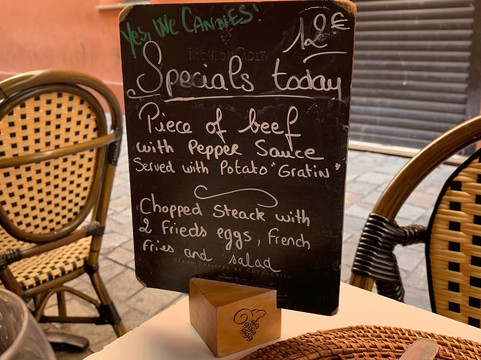 Yes, We CANNES!
12€
Specials today
Piece of beef
with Pepper Sauce
Served with Potato "Gratin"
Chopped Steack with
2 frieds eggs, french
fries and salad